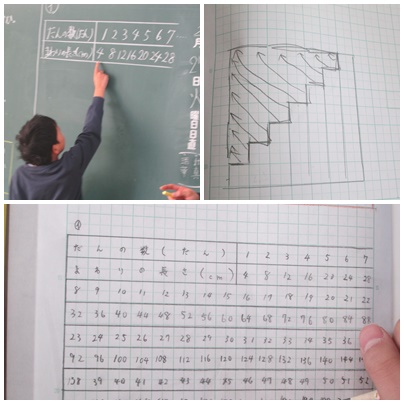 だんの数(だん) 1 2 3 4 5 6 7
まわりの長さ(cm) 4 8 12 16 20 24 28
月
日
曜日
日直
だんの数(だん) 1 2 3 4 5 6 7
まわりの長さ(cm) 4 8 12 16 20 24 28
8 9 10 11 12 13 14 15 16 17 18 19 20 21 22
32 36 40 44 48 52 56 60 64 68 72 76 80 84 88
23 24 25 26 27 28 29 30 31 32 33 34 35 36
92 96 100 104 108 112 116 120 124 128 132 136 140 144
39 40 41 42 43 44 45 46 47 48 49 50 51 52